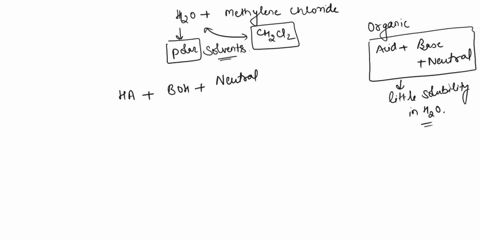 H2O + Methylene Chloride
Polar Solvents CH2Cl2
HA + BOH + Neutral
Organic
Acid + Base
+ Neutral
little solubility
in H2O.